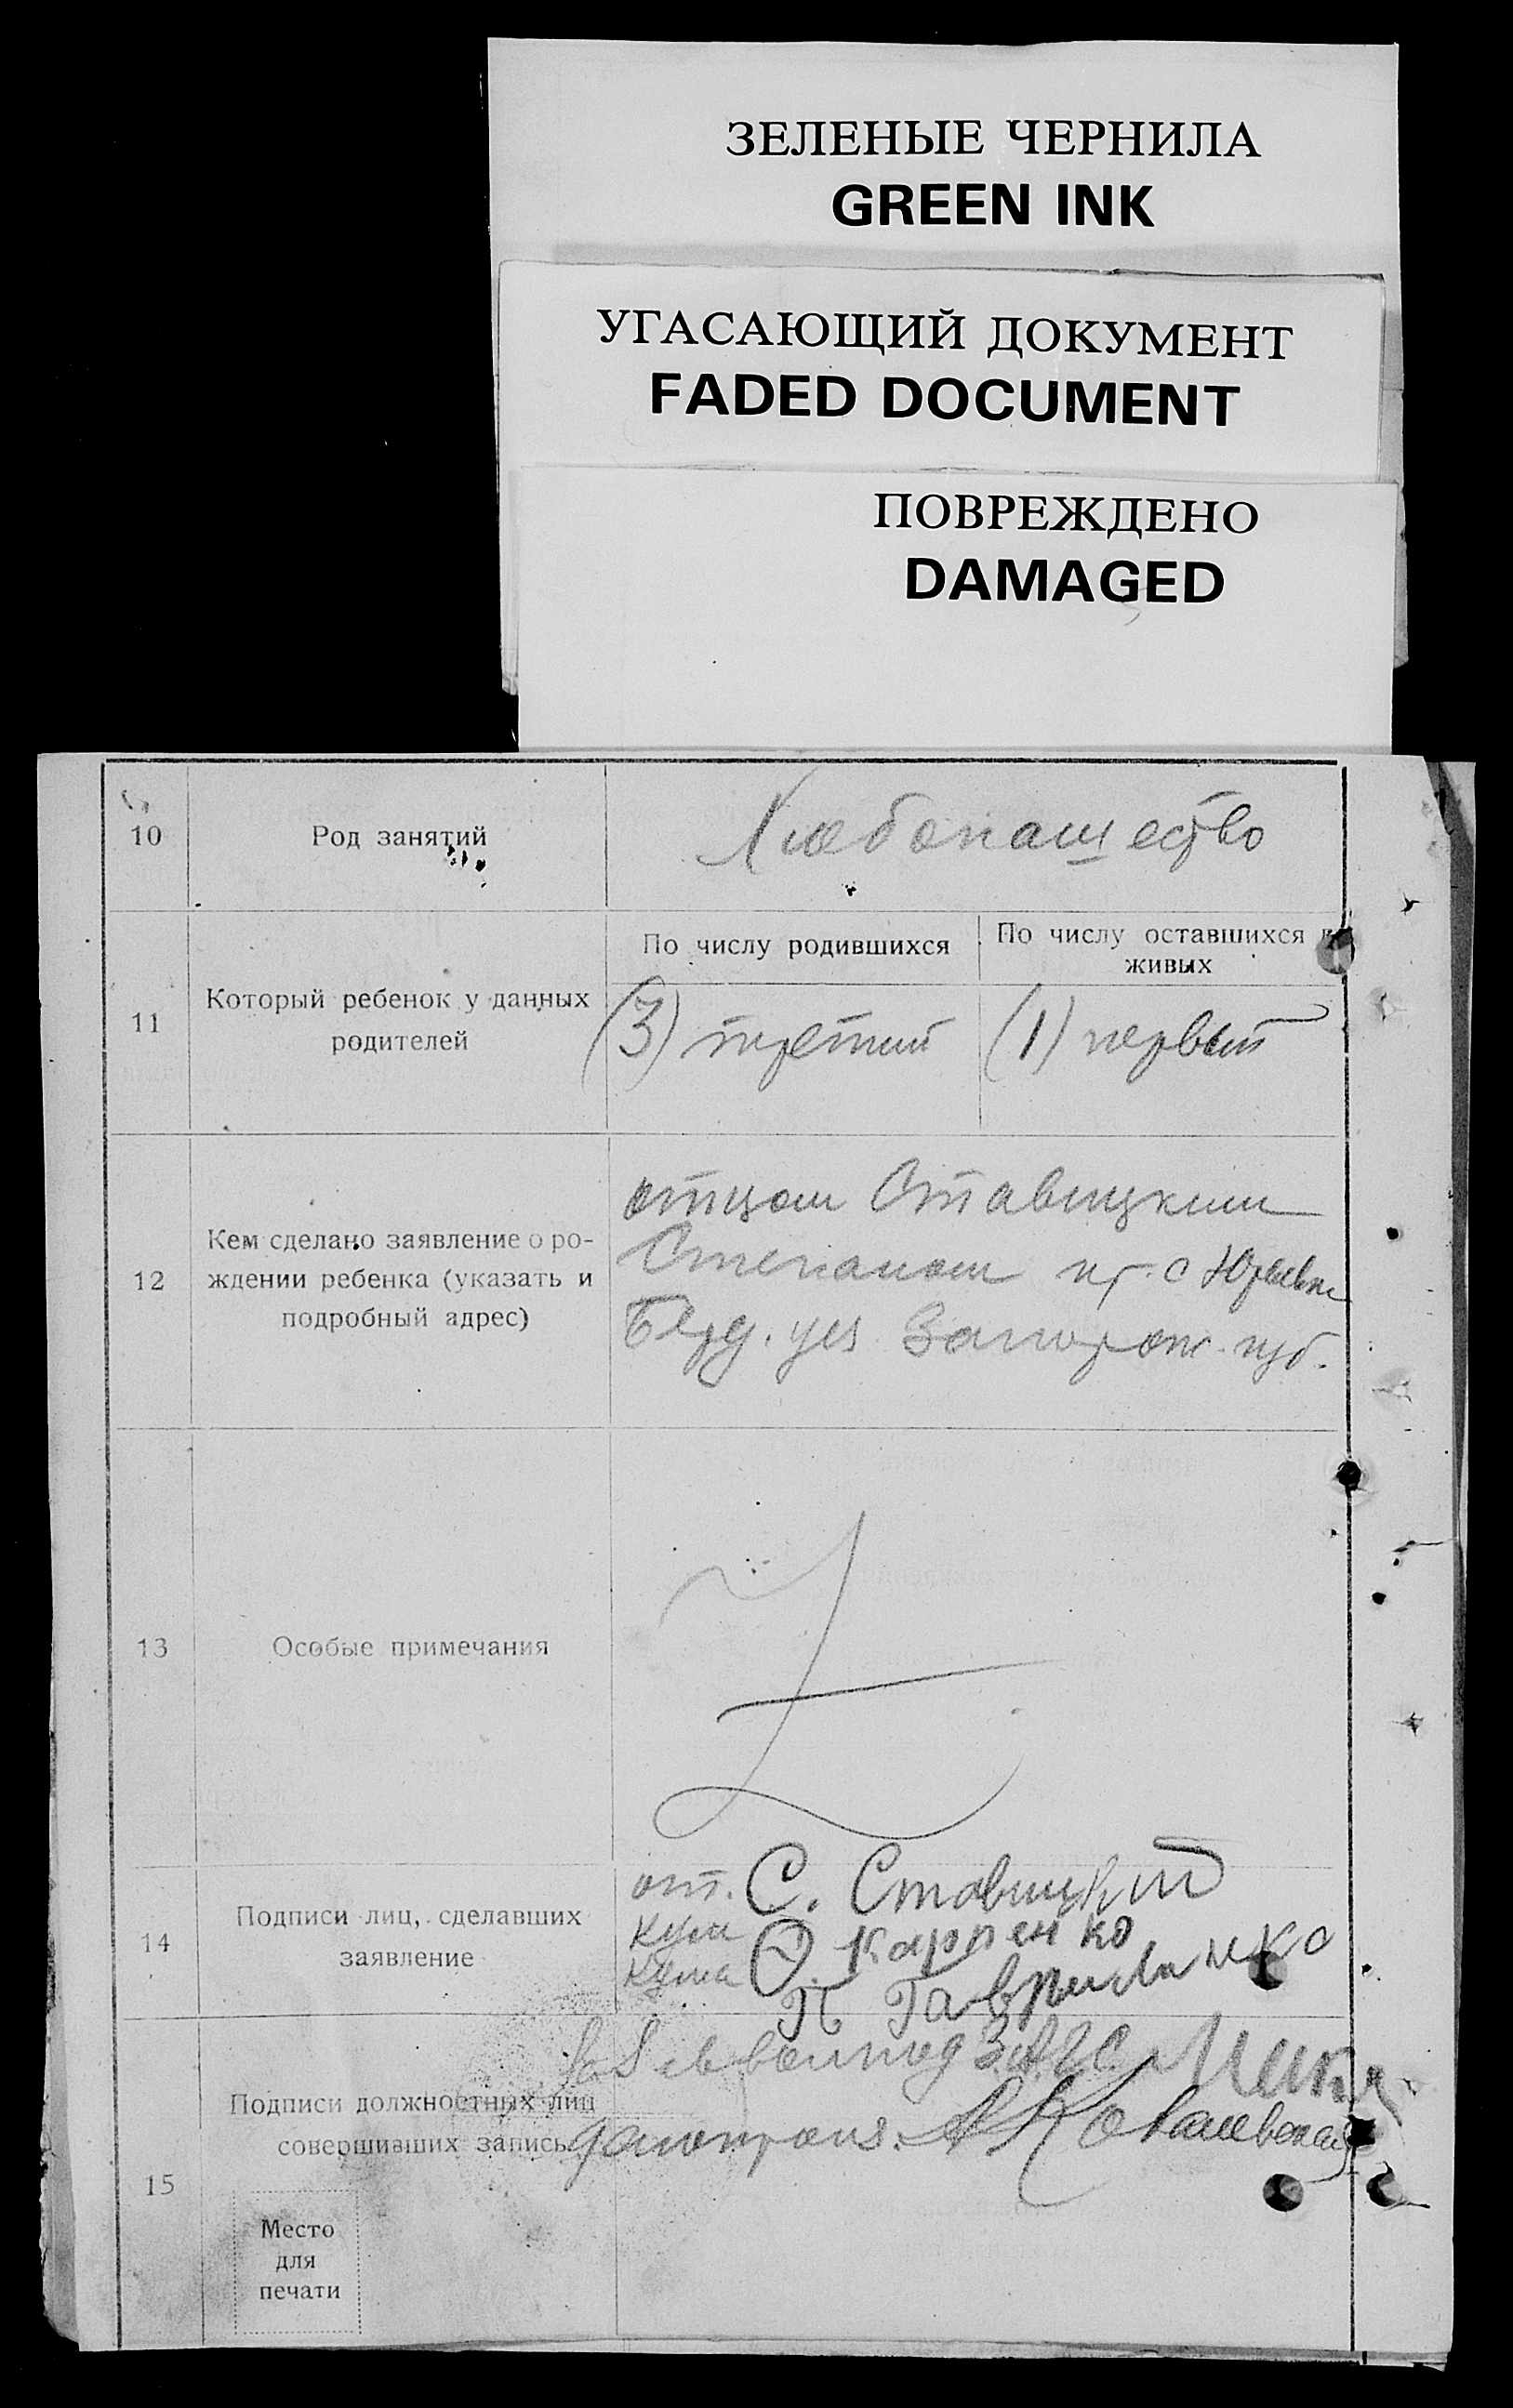 ЗЕЛЕНЫЕ ЧЕРНИЛА
GREEN INK
УГАСАЮЩИЙ ДОКУМЕНТ
FADED DOCUMENT
ПОВРЕЖДЕНО
DAMAGED
10
Род занятий
Хлебопашество
11
Который ребенок у данных
родителей
По числу родившихся
По числу оставшихся в
живых
(3) третий
(1) первый
12
Кем сделано заявление о ро-
ждении ребенка (указать и
подробный адрес)
отцом Ставицким
Степаном гр. с Юрьевки
Берд. уез Запорож. губ.
13
Особые примечания
14
Подписи лиц, сделавших
заявление
от. С. Ставицкий
Кум Ф. Карпенко
Кума П Гавриленко
15
Подписи должностных лиц
совершивших запись
Зав волпод ЗАГС
делопроиз. Ковалевский
Место
для
печати